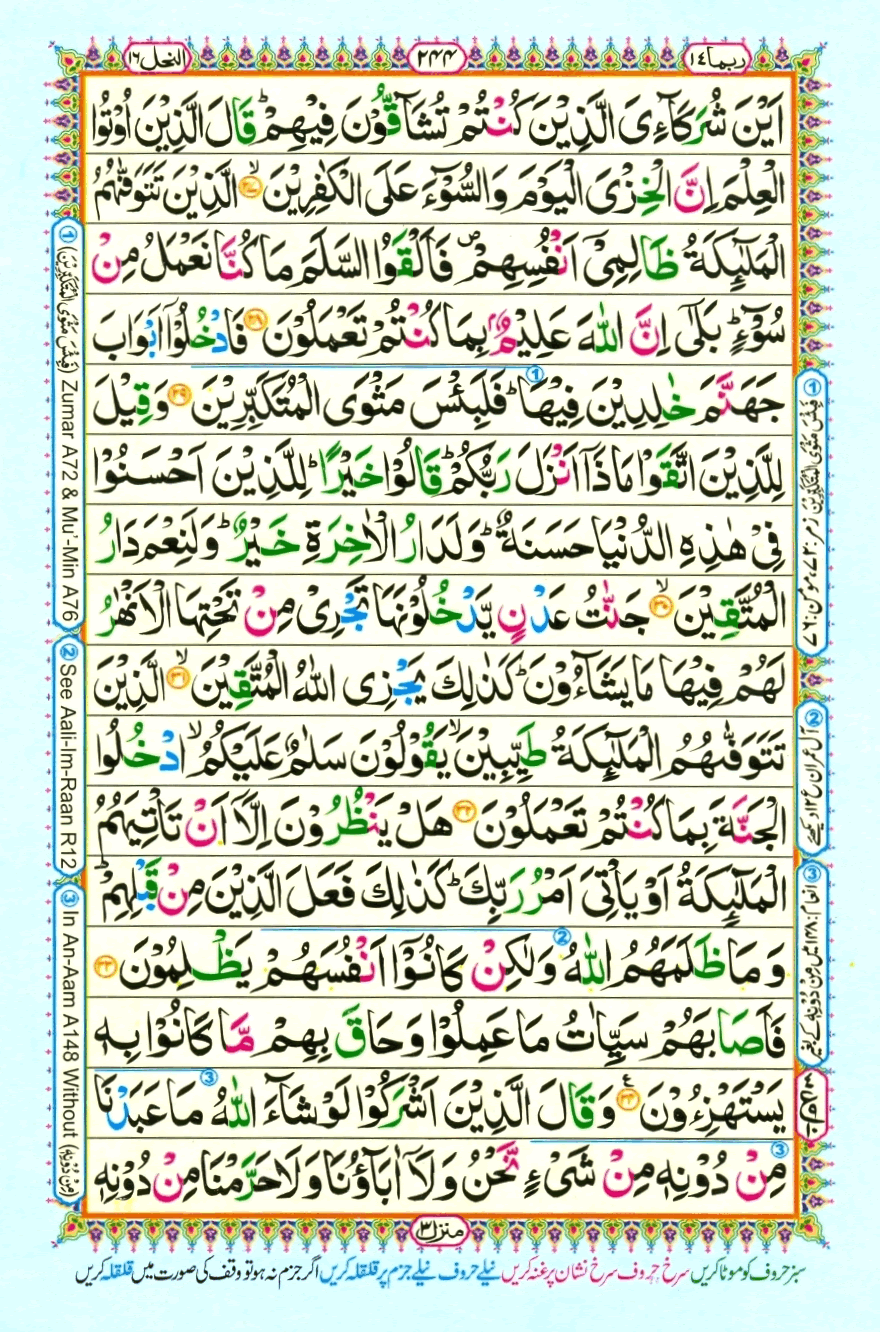 ربما ١٤
٢٤٤
النحل ١٦
اَيۡنَ شُرَكَآءِىَ الَّذِيۡنَ كُنۡتُمۡ تُشَآقُّوۡنَ فِيۡهِمۡ‌ؕ قَالَ الَّذِيۡنَ اُوۡتُوا
الۡعِلۡمَ اِنَّ الۡخِزۡىَ الۡيَوۡمَ وَالسُّوۡٓءَ عَلَى الۡكٰفِرِيۡنَۙ‏ ﴿۲۷﴾ الَّذِيۡنَ تَتَوَفّٰٮهُمُ
الۡمَلٰۤٮِٕكَةُ ظَالِمِىۡۤ اَنۡفُسِهِمۡ‌ ۖ فَاَلۡقَوُا السَّلَمَ مَا كُنَّا نَعۡمَلُ مِنۡ
سُوۡۤءٍ‌ؕ بَلٰٓى اِنَّ اللّٰهَ عَلِيۡمٌۢ بِمَا كُنۡتُمۡ تَعۡمَلُوۡنَ‏ ﴿۲۸﴾ فَادۡخُلُوۡۤا اَبۡوَابَ
جَهَنَّمَ خٰلِدِيۡنَ فِيۡهَا‌ؕ فَلَبِئۡسَ مَثۡوَى الۡمُتَكَبِّرِيۡنَ‏ ﴿۲۹﴾ وَقِيۡلَ
لِلَّذِيۡنَ اتَّقَوۡا مَاذَاۤ اَنۡزَلَ رَبُّكُمۡ‌ؕ قَالُوۡا خَيۡرًاؕ‌ لِّلَّذِيۡنَ اَحۡسَنُوۡا
فِىۡ هٰذِهِ الدُّنۡيَا حَسَنَةٌ‌ ؕ وَلَدَارُ الۡاٰخِرَةِ خَيۡرٌ‌ ؕ وَلَنِعۡمَ دَارُ
الۡمُتَّقِيۡنَۙ‏ ﴿۳۰﴾ جَنّٰتُ عَدۡنٍ يَّدۡخُلُوۡنَهَا تَجۡرِىۡ مِنۡ تَحۡتِهَا الۡاَنۡهٰرُ‌
لَهُمۡ فِيۡهَا مَا يَشَآءُوۡنَ‌ؕ كَذٰلِكَ يَجۡزِى اللّٰهُ الۡمُتَّقِيۡنَۙ‏ ﴿۳۱﴾ الَّذِيۡنَ
تَتَوَفّٰٮهُمُ الۡمَلٰۤٮِٕكَةُ طَيِّبِيۡنَ‌ۙ يَقُوۡلُوۡنَ سَلٰمٌ عَلَيۡكُمُۙ ادۡخُلُوا
الۡجَـنَّةَ بِمَا كُنۡتُمۡ تَعۡمَلُوۡنَ‏ ﴿۳۲﴾ هَلۡ يَنۡظُرُوۡنَ اِلَّاۤ اَنۡ تَاۡتِيَهُمُ
الۡمَلٰۤٮِٕكَةُ اَوۡ يَاۡتِىَ اَمۡرُ رَبِّكَ‌ؕ كَذٰلِكَ فَعَلَ الَّذِيۡنَ مِنۡ قَبۡلِهِمۡ‌ؕ
وَمَا ظَلَمَهُمُ اللّٰهُ وَلٰكِنۡ كَانُوۡۤا اَنۡفُسَهُمۡ يَظۡلِمُوۡنَ‏ ﴿۳۳﴾
فَاَصَابَهُمۡ سَيِّاٰتُ مَا عَمِلُوۡا وَحَاقَ بِهِمۡ مَّا كَانُوۡا بِهٖ
يَسۡتَهۡزِءُوۡنَ ﴿۳۴﴾ وَقَالَ الَّذِيۡنَ اَشۡرَكُوۡا لَوۡ شَآءَ اللّٰهُ مَا عَبَدۡنَا
مِنۡ دُوۡنِهٖ مِنۡ شَىۡءٍ نَّحۡنُ وَلَاۤ اٰبَآؤُنَا وَلَا حَرَّمۡنَا مِنۡ دُوۡنِهٖ
① (فَبِئْسَ مَثْوَى الْمُتَكَبِّرِيْنَ) Zumar A72 & Mu'-Min A76
② See Aali-Im-Raan R12
③ In An-Aam A148 Without (مِنْ دُوْنِهٖ)
① فَبِئْسَ مَثْوَى الْمُتَكَبِّرِيْنَ زمر:٧٢، مومن:٧٦
② آل عمران ع ١٢ دیکھئے
③ انعام:١٤٨ میں مِنْ دُوْنِهٖ کے بغیر
منزل ٣
سبز حروف کو موٹا کریں سرخ حروف سرخ نشان پر غنہ کریں نیلے حروف نیلے جزم پر قلقلہ کریں اگر جزم نہ ہو تو وقف کی صورت میں قلقلہ کریں